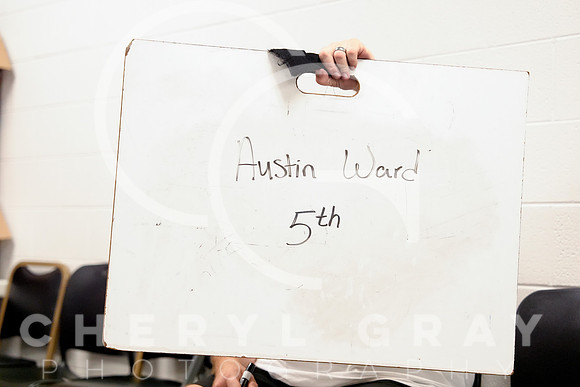 Austin Ward
5th
CHERYL GRAY
PHOTOGRAPHY